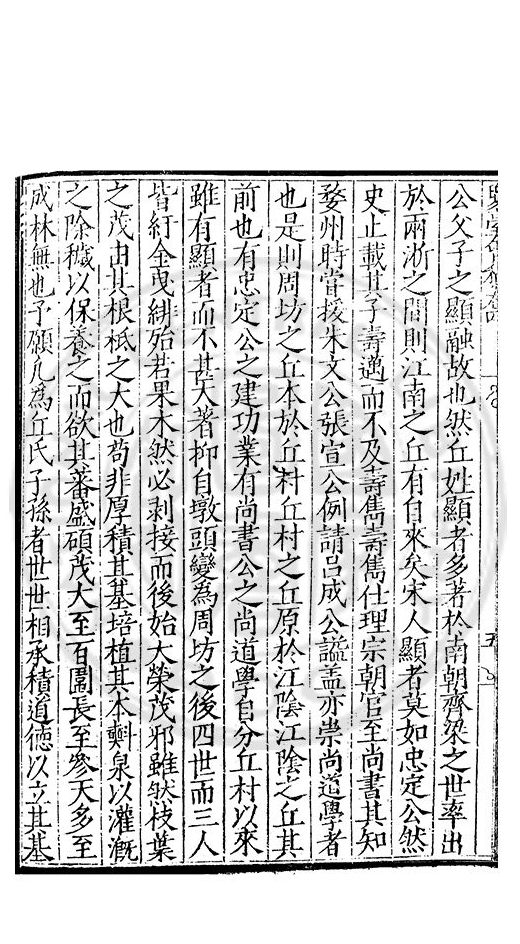 公父子之顯融故也然丘姓顯者多著於南朝齊梁之世率出
於兩浙之間則江南之丘有自來矣宋人顯者莫如忠定公然
史止載其子壽邁而不及壽雋壽雋仕理宗朝官至尚書其知
婺州時嘗援朱文公張宣公例請呂成公謚盖亦崇尚道學者
也是則周坊之丘本於丘村丘村之丘原於江陰江陰之丘其
前也有忠定公之建功業有尚書公之尚道學自分丘村以來
雖有顯者而不甚大著抑自墩頭變為周坊之後四世而三人
皆紆金曳緋殆若果木然必剥接而後始大榮茂邪雖然枝葉
之茂由其根柢之大也苟非厚積其基培植其本㪺泉以灌溉
之除穢以保養之而欲其蕃盛碩茂大至百圍長至參天多至
成林無也予願凡為丘氏子孫者世世相承積道德以立其基